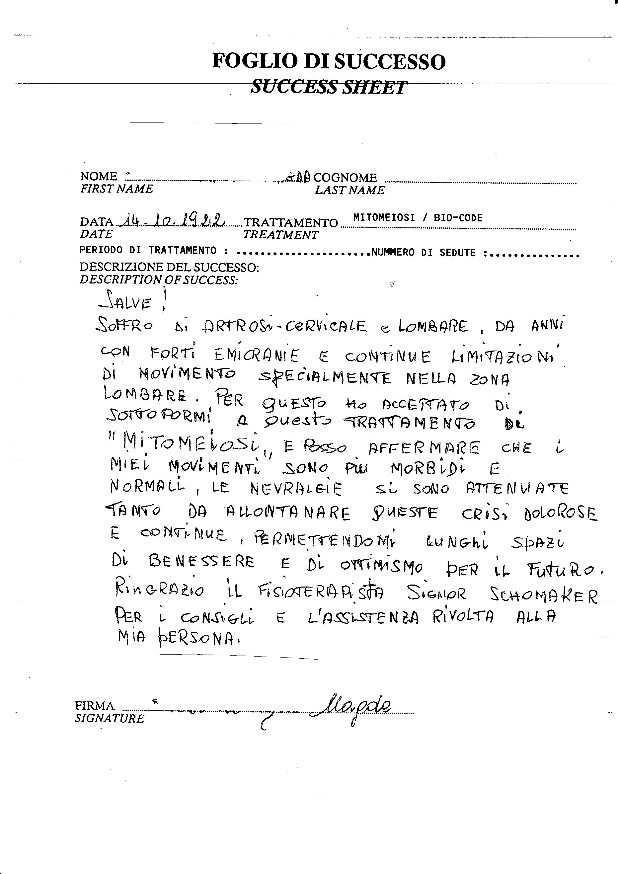 FOGLIO DI SUCCESSO
SUCCESS SHEET
NOME COGNOME
FIRST NAME LAST NAME
DATA 14.10.1922 TRATTAMENTO MITOMEIOSI / BIO-CODE
DATE TREATMENT
PERIODO DI TRATTAMENTO : ....................NUMMERO DI SEDUTE :..............
DESCRIZIONE DEL SUCCESSO:
DESCRIPTION OF SUCCESS:
SALVE!
SOFFRO DI ARTROSI-CERVICALE e LOMBARE, DA ANNI
CON FORTI EMICRANIE E CONTINUE LIMITAZIONI
DI MOVIMENTO SPECIALMENTE NELLA ZONA
LOMBARE. PER QUESTO HO ACCETTATO DI
SOTTOPORMI A QUESTO TRATTAMENTO DI
"MITOMEIOSI,, E POSSO AFFERMARE CHE I
MIEI MOVIMENTI SONO PIU MORBIDI E
NORMALI, LE NEVRALGIE SI SONO ATTENUATE
TANTO DA ALLONTANARE QUESTE CRISI DOLOROSE
E CONTINUE, PERMETTENDOMI LUNGHI SPAZI
DI BENESSERE E DI OTTIMISMO PER IL FUTURO.
RINGRAZIO IL FISIOTERAPISTA SIGNOR SCHOMAKER
PER I CONSIGLI E L'ASSISTENZA RIVOLTA ALLA
MIA PERSONA.
FIRMA Magda
SIGNATURE